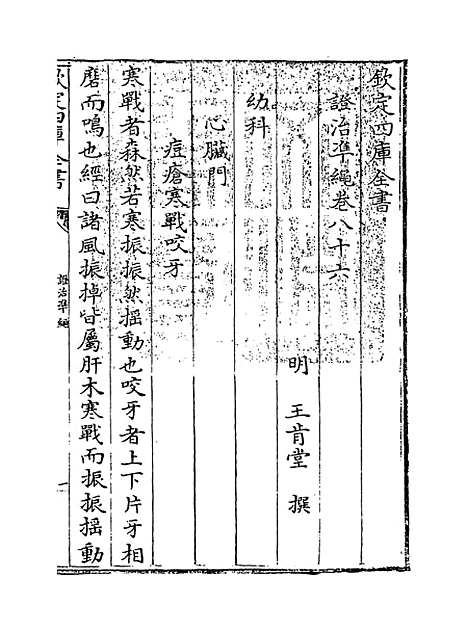 欽定四庫全書
證治凖繩卷八十六
明　王肯堂　撰
幼科
心臟門
痘瘡寒戰咬牙
寒戰者森然若寒振振然揺動也咬牙者上下片牙相
磨而鳴也經曰諸風振掉皆屬肝木寒戰而振振揺動
欽定四庫全書
證治凖繩
一